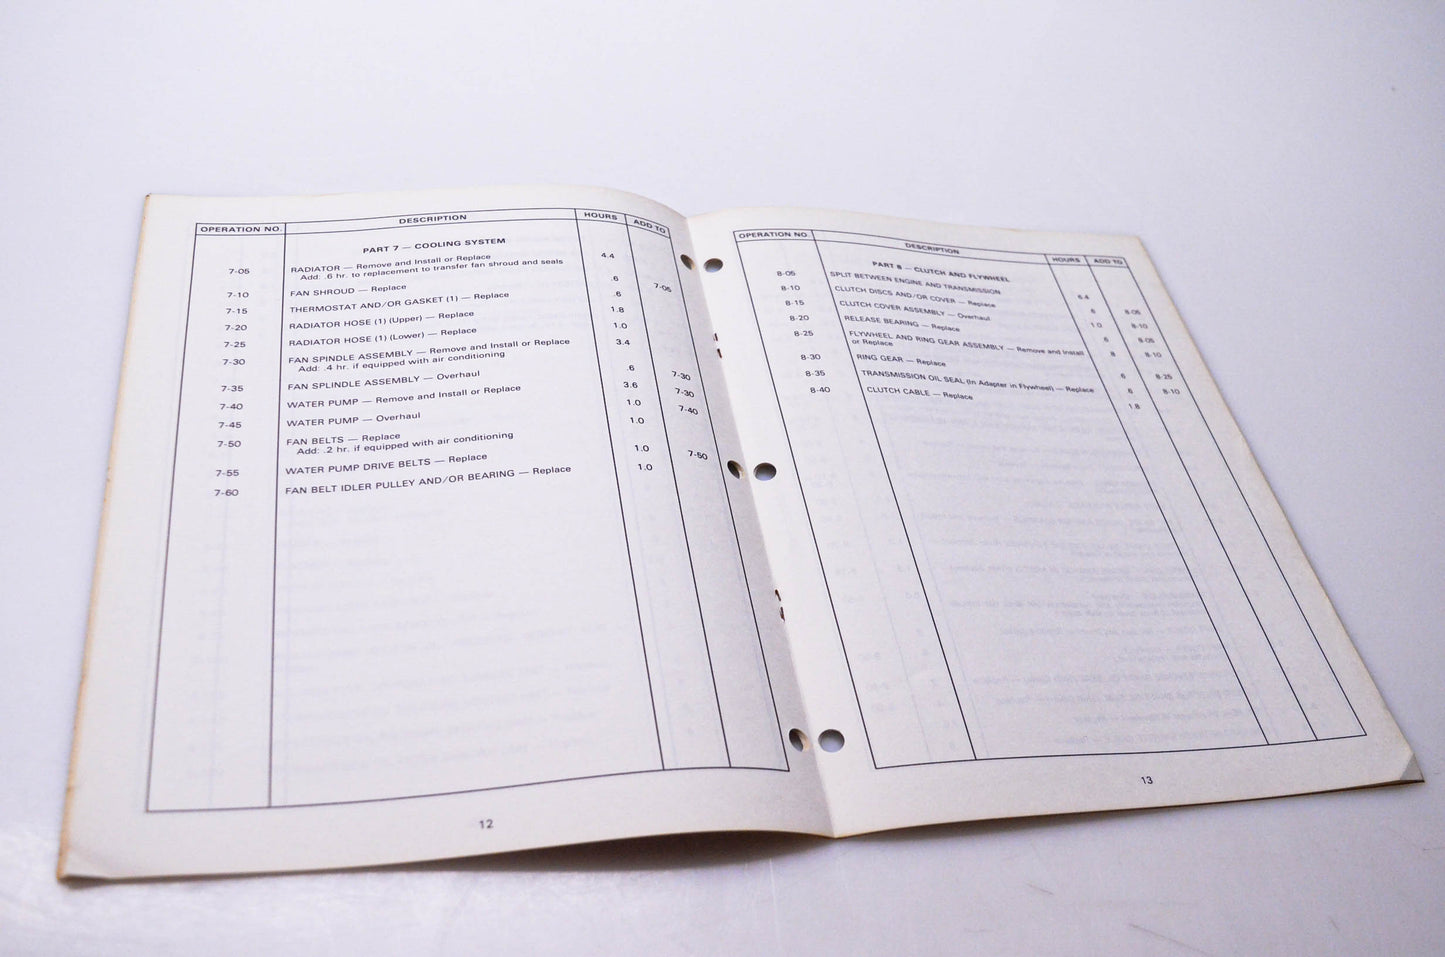 OPERATION NO. DESCRIPTION HOURS ADD TO
PART 7 — COOLING SYSTEM
7-05 RADIATOR — Remove and Install or Replace 4.4
Add: .6 hr. to replacement to transfer fan shroud and seals
7-10 FAN SHROUD — Replace .6 7-05
7-15 THERMOSTAT AND/OR GASKET (1) — Replace .6
7-20 RADIATOR HOSE (1) (Upper) — Replace 1.8
7-25 RADIATOR HOSE (1) (Lower) — Replace 1.0
7-30 FAN SPINDLE ASSEMBLY — Remove and Install or Replace 3.4
Add: .4 hr. if equipped with air conditioning
7-35 FAN SPLINDLE ASSEMBLY — Overhaul .6 7-30
7-40 WATER PUMP — Remove and Install or Replace 3.6 7-30
7-45 WATER PUMP — Overhaul 1.0 7-40
7-50 FAN BELTS — Replace 1.0
Add: .2 hr. if equipped with air conditioning
7-55 WATER PUMP DRIVE BELTS — Replace 1.0 7-50
7-60 FAN BELT IDLER PULLEY AND/OR BEARING — Replace 1.0
12
OPERATION NO. DESCRIPTION HOURS ADD TO
PART 8 — CLUTCH AND FLYWHEEL
8-05 SPLIT BETWEEN ENGINE AND TRANSMISSION 6.4
8-10 CLUTCH DISCS AND/OR COVER — Replace .6 8-05
8-15 CLUTCH COVER ASSEMBLY — Overhaul 1.0 8-10
8-20 RELEASE BEARING — Replace .6 8-05
8-25 FLYWHEEL AND RING GEAR ASSEMBLY — Remove and Install .8 8-10
or Replace
8-30 RING GEAR — Replace .6 8-25
8-35 TRANSMISSION OIL SEAL (In Adapter in Flywheel) — Replace .6 8-10
8-40 CLUTCH CABLE — Replace 1.8
13